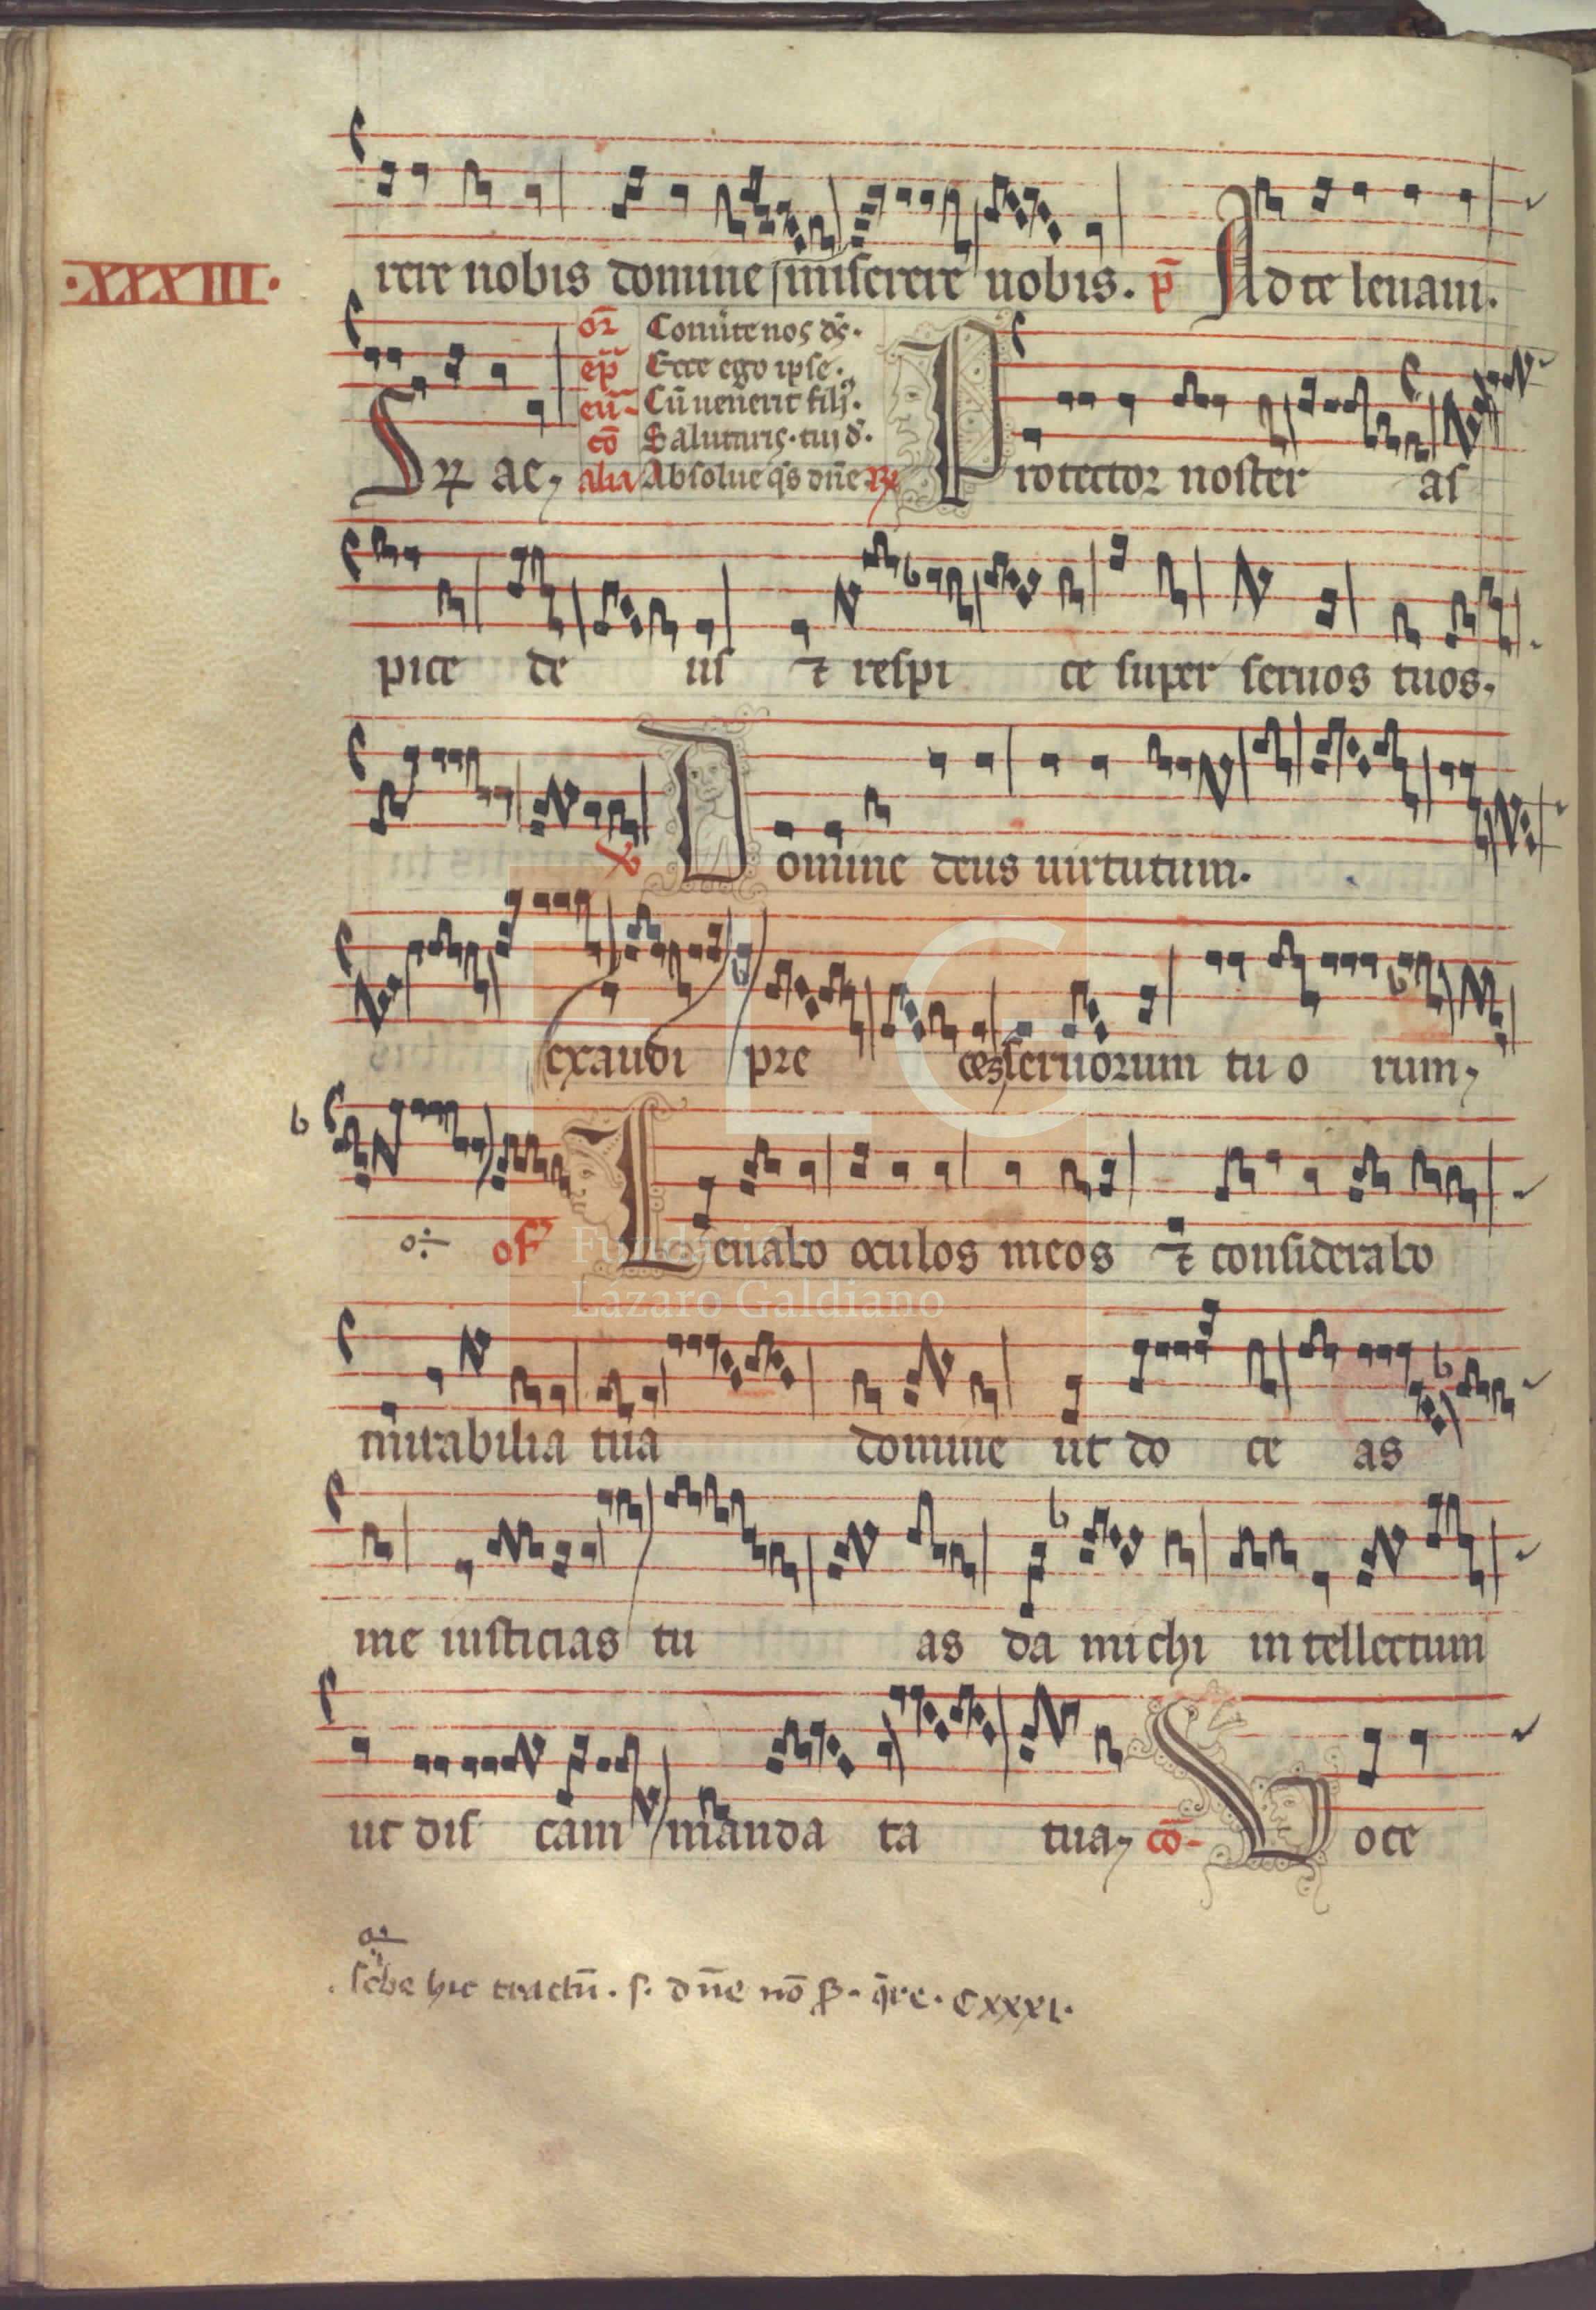 ·XXXIII·
rere nobis domine miserere nobis. p̄ Ad te leuaui.
or̄ Conuerte nos ds̄.
ep̄ Ecce ego ipse.
eū Cū uenerit fili9.
cō Salutaris. tui d.
Sꝝ ac, alia Absolue qs dn̄e ꝶ Protector noster as
pice de us ⁊ respi ce super seruos tuos.
℣ Domine deus uirtutum.
exaudi pre ces seruorum tu o rum,
of Leuabo oculos meos ⁊ considerabo
mirabilia tua domine ut do ce as
me iusticias tu as da michi in tellectum
ut dis cam manda ta tua, cō- Voce
hic tractū. s. dn̄e nō qre. CXXXI.
FLG
Fundación
Lázaro Galdiano